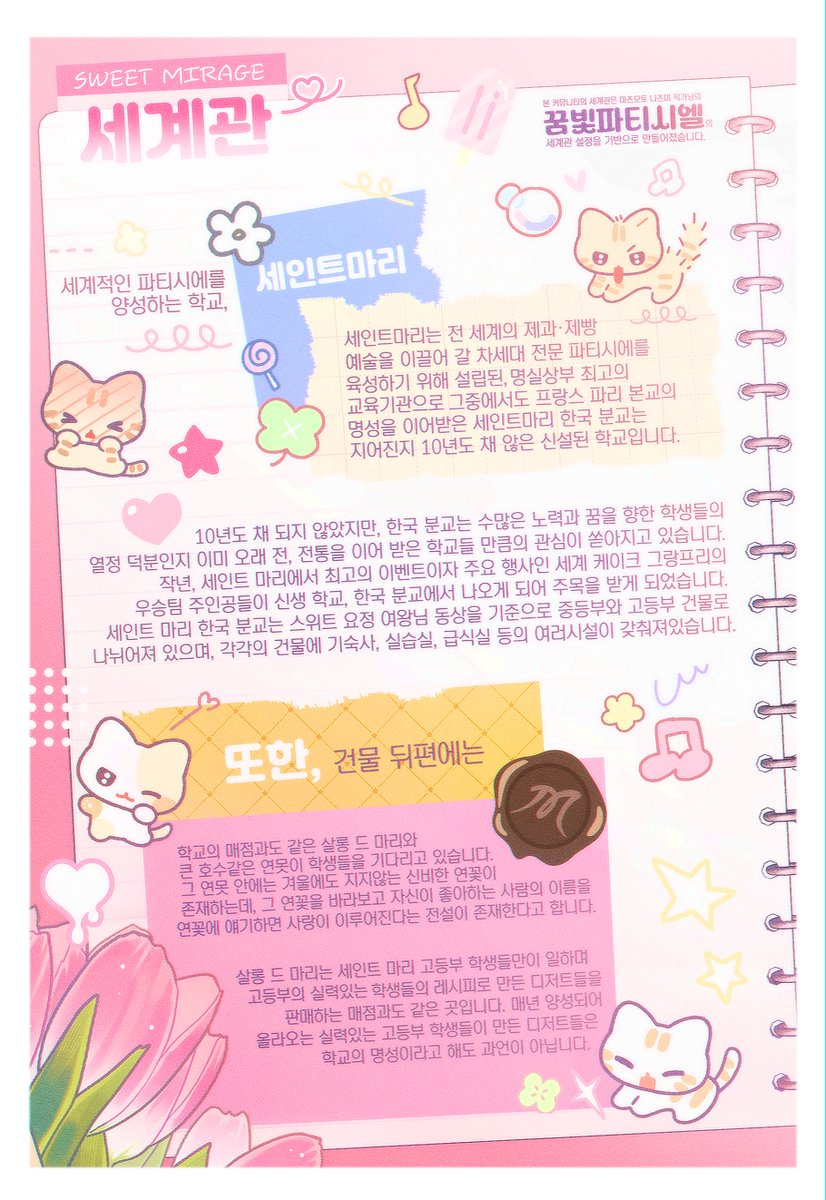 SWEET MIRAGE
세계관
본 커뮤니티의 세계관은 마츠모토 나츠미 작가님의
꿈빛파티시엘의
세계관 설정을 기반으로 만들어졌습니다.
세인트마리
세계적인 파티시에를
양성하는 학교,
세인트마리는 전 세계의 제과·제빵
예술을 이끌어 갈 차세대 전문 파티시에를
육성하기 위해 설립된, 명실상부 최고의
교육기관으로 그중에서도 프랑스 파리 본교의
명성을 이어받은 세인트마리 한국 분교는
지어진지 10년도 채 않은 신설된 학교입니다.
10년도 채 되지 않았지만, 한국 분교는 수많은 노력과 꿈을 향한 학생들의
열정 덕분인지 이미 오래 전, 전통을 이어 받은 학교들 만큼의 관심이 쏟아지고 있습니다.
작년, 세인트 마리에서 최고의 이벤트이자 주요 행사인 세계 케이크 그랑프리의
우승팀 주인공들이 신생 학교, 한국 분교에서 나오게 되어 주목을 받게 되었습니다.
세인트 마리 한국 분교는 스위트 요정 여왕님 동상을 기준으로 중등부와 고등부 건물로
나뉘어져 있으며, 각각의 건물에 기숙사, 실습실, 급식실 등의 여러시설이 갖춰져있습니다.
또한, 건물 뒤편에는
학교의 매점과도 같은 살롱 드 마리와
큰 호수같은 연못이 학생들을 기다리고 있습니다.
그 연못 안에는 겨울에도 지지않는 신비한 연꽃이
존재하는데, 그 연꽃을 바라보고 자신이 좋아하는 사람의 이름을
연꽃에 얘기하면 사랑이 이루어진다는 전설이 존재한다고 합니다.
살롱 드 마리는 세인트 마리 고등부 학생들만이 일하며
고등부의 실력있는 학생들의 레시피로 만든 디저트들을
판매하는 매점과도 같은 곳입니다. 매년 양성되어
올라오는 실력있는 고등부 학생들이 만든 디저트들은
학교의 명성이라고 해도 과언이 아닙니다.